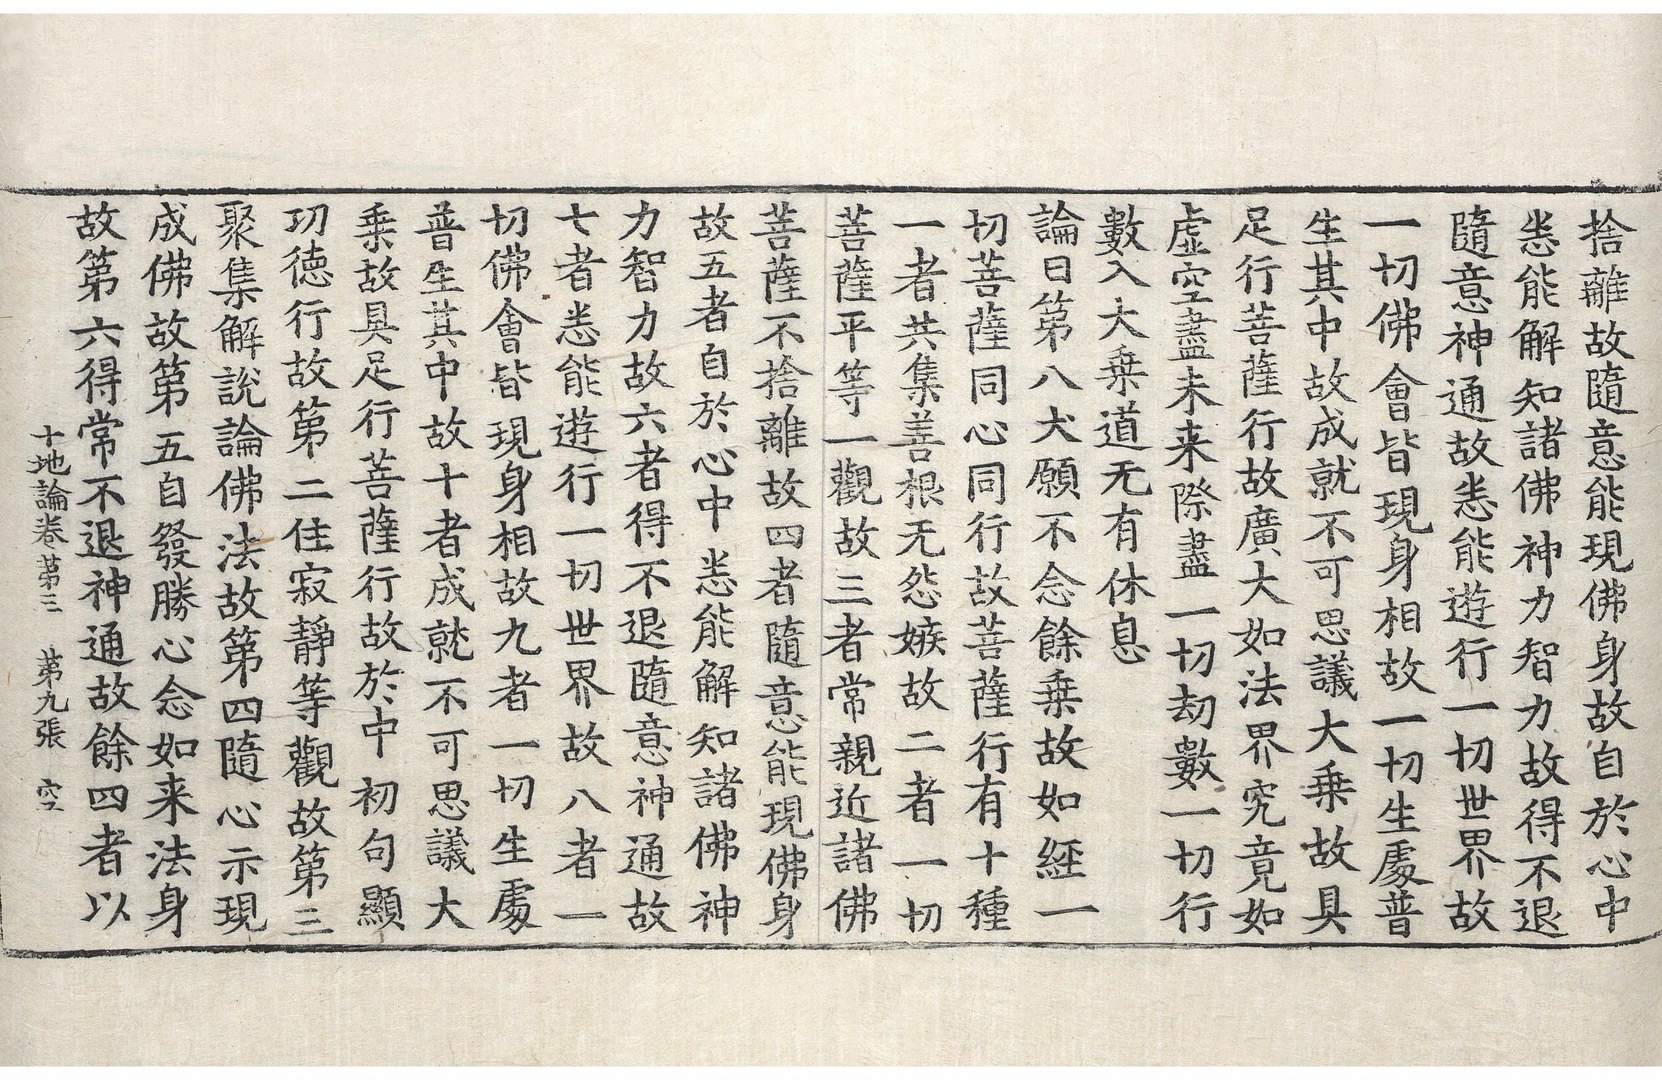 捨離故隨意能現佛身故自於心中
悉能解知諸佛神力智力故得不退
隨意神通故悉能遊行一切世界故
一切佛會皆現身相故一切生處普
生其中故成就不可思議大乗故具
足行菩薩行故廣大如法界究竟如
虛空盡未来際盡一切劫數一切行
數入大乗道无有休息
論曰第八大願不念餘乗故如經一
切菩薩同心同行故菩薩行有十種
一者共集善根无怨嫉故二者一切
菩薩平等一觀故三者常親近諸佛
菩薩不捨離故四者隨意能現佛身
故五者自於心中悉能解知諸佛神
力智力故六者得不退隨意神通故
七者悉能遊行一切世界故八者一
切佛會皆現身相故九者一切生處
普生其中故十者成就不可思議大
乗故具足行菩薩行故於中初句顯
功德行故第二住寂靜等觀故第三
聚集解說論佛法故第四隨心示現
成佛故第五自發勝心念如来法身
故第六得常不退神通故餘四者以
十地論卷第三 第九張 空